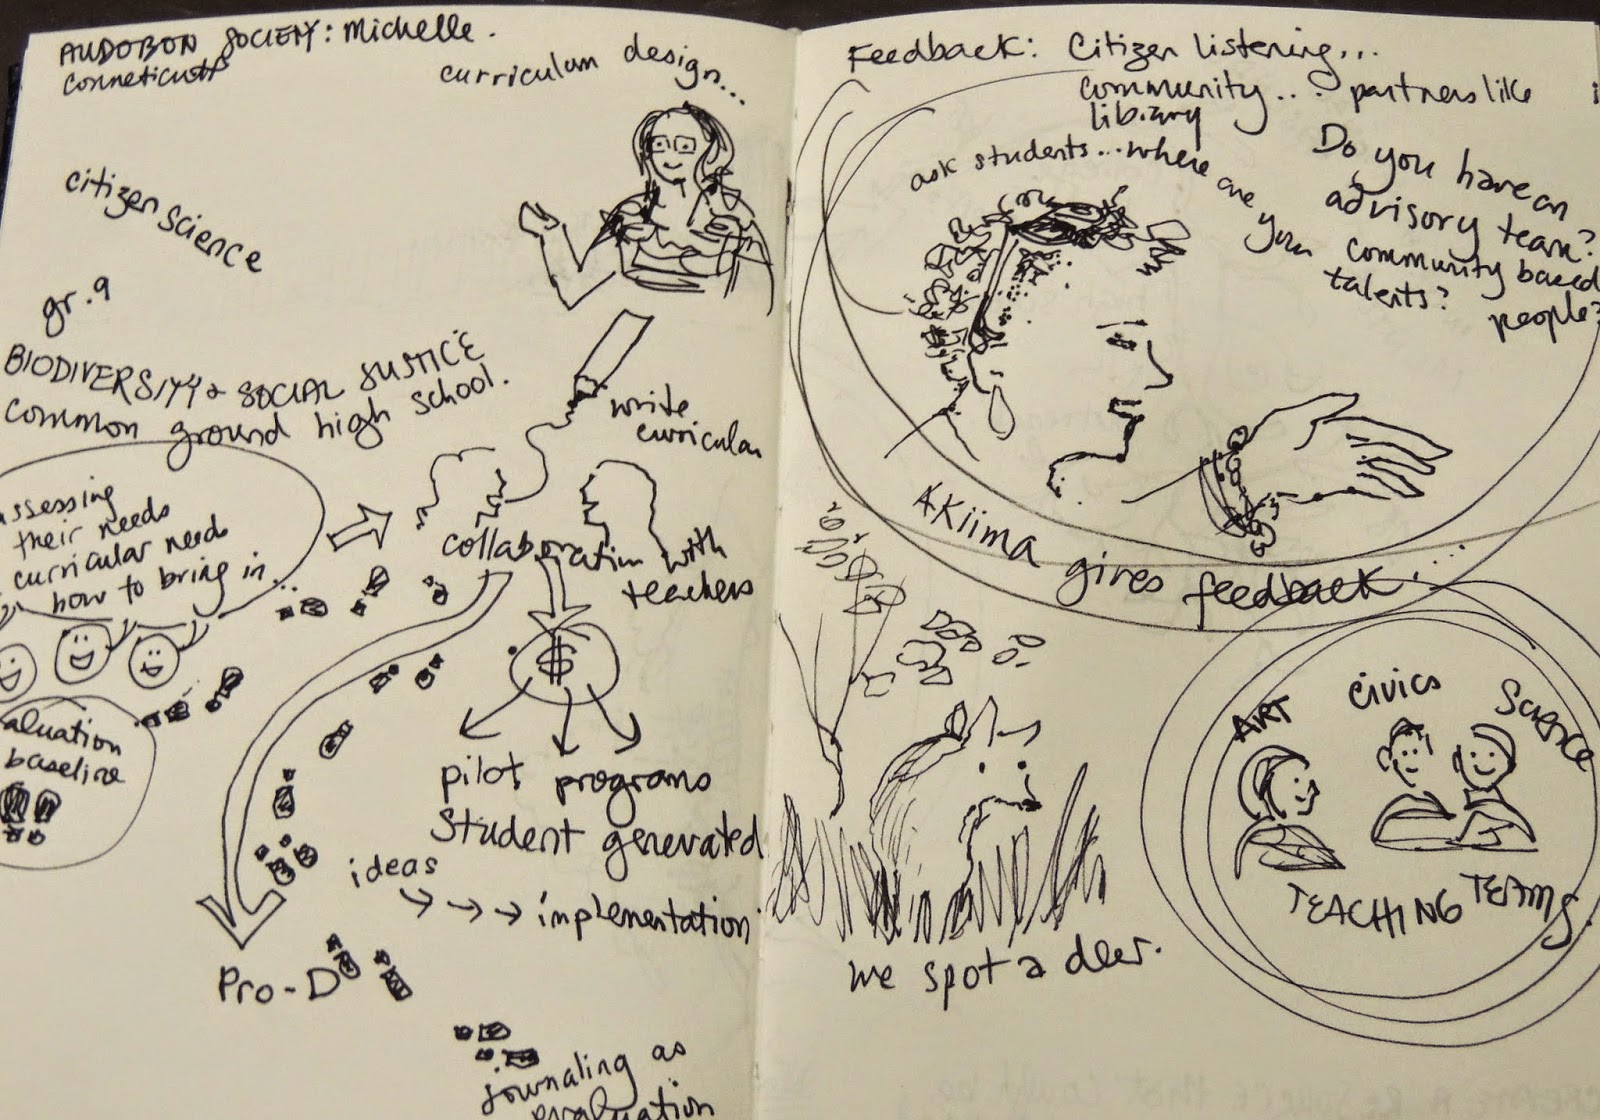 AUDOBON SOCIETY: Michelle.
conneticutt
curriculum design...
citizen science
gr. 9
BIODIVERSITY & SOCIAL JUSTICE
common ground high school.
write
curriculum
assessing
their needs
curricular needs
how to bring in...
collaboration with
teachers
$
aluation
baseline
pilot programs
Student generated
ideas
implementation
Pro-D
journaling as
evaluation
Feedback: Citizen listening...
community... partners like
library
ask students... where are you
talents?
Do you have an
advisory team?
community based
people?
AKiima gives feedback...
we spot a deer.
ART
civics
Science
TEACHING TEAMS